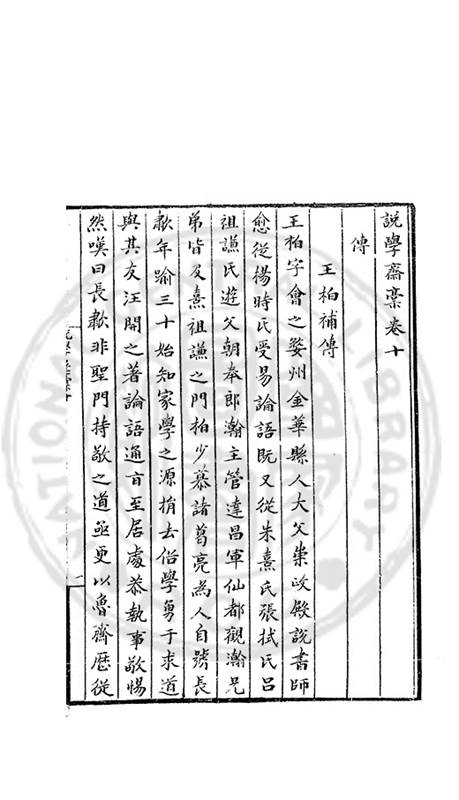 説學齋稾卷十
傳
王柏補傳
王柏字會之婺州金華縣人大父崇政殿說書師
愈從楊時氏受易論語既又從朱熹氏張栻氏呂
祖謙氏遊父朝奉郎瀚主管建昌軍仙都觀瀚兄
弟皆及熹祖謙之門柏少慕諸葛亮為人自號長
歗年踰三十始知家學之源捐去俗學勇于求道
與其友汪開之著論語通旨至居處恭執事敬惕
然嘆曰長歗非聖門持敬之道亟更以魯齋歷從